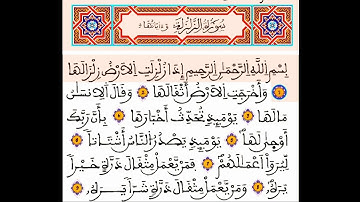 سورة الزلزلة وءاياتها ٨
بسم الله الرحمن الرحيم إذا زلزلت الأرض زلزالها
١ وأخرجت الأرض أثقالها ٢ وقال الإنسان
مالها ٣ يومئذ تحدث أخبارها ٤ بأن ربك
أوحى لها ٥ يومئذ يصدر الناس أشتاتا ٦
ليروا أعمالهم ٧ فمن يعمل مثقال ذرة خيرا
يره ٨ ومن يعمل مثقال ذرة شرا يره ٩